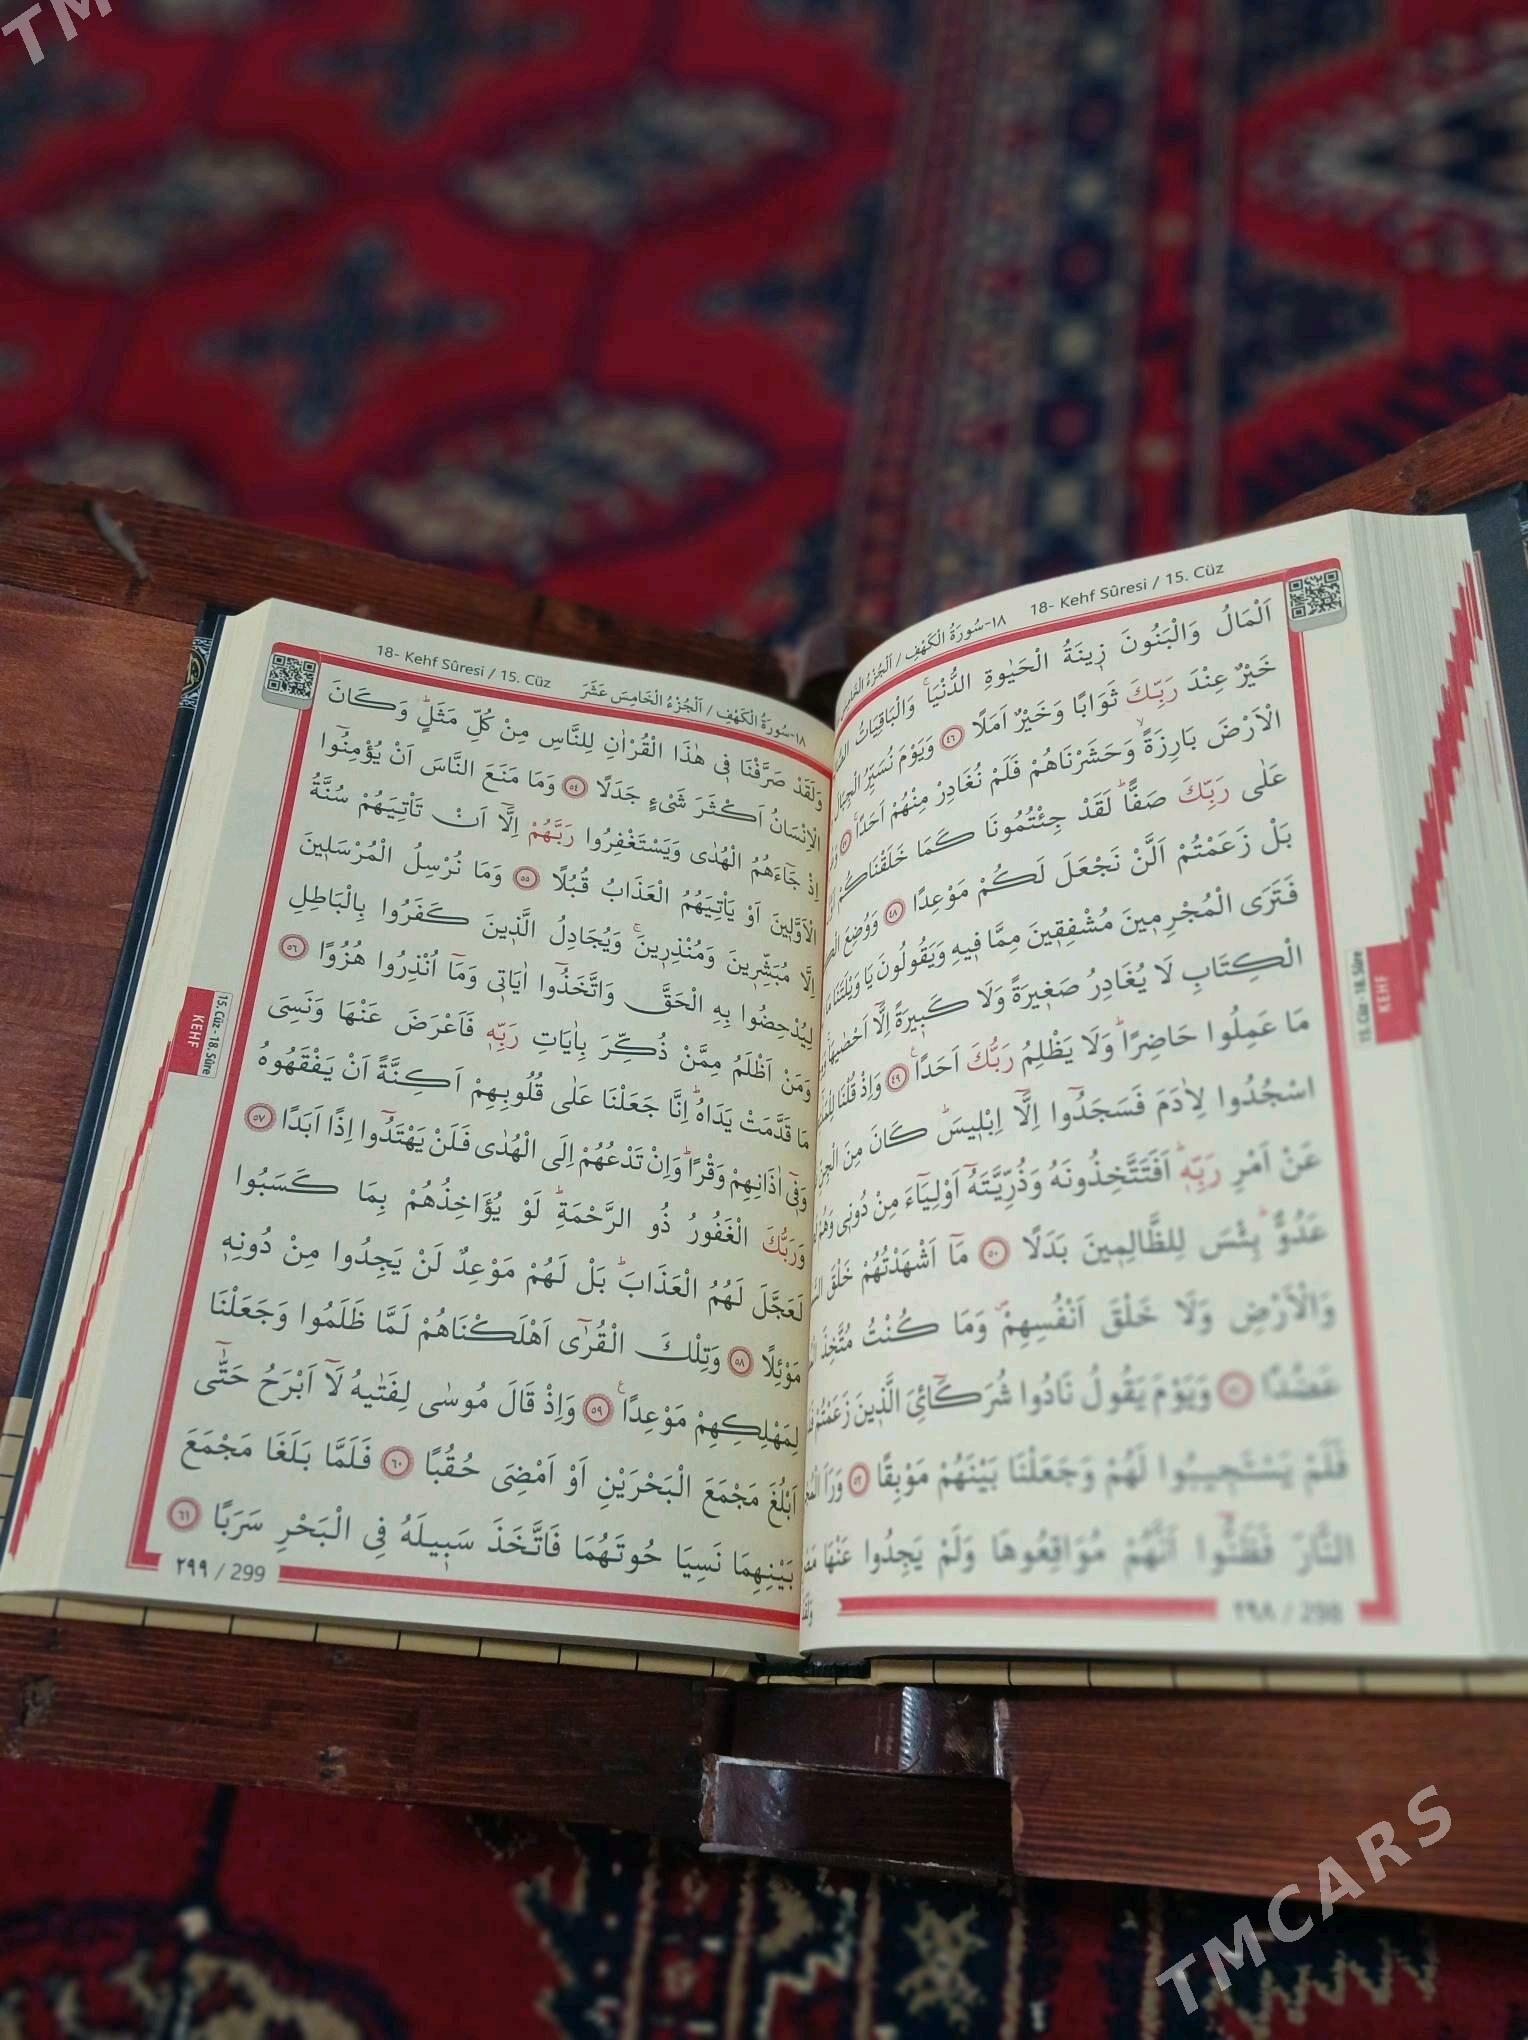 TMCARS
18- Kehf Sûresi / 15. Cüz
١٨-سُورَةُ الْكَهْفِ / اَلْجُزْءُ
اَلْمَالُ وَالْبَنُونَ زٖينَةُ الْحَيٰوةِ الدُّنْيَاۚ وَالْبَاقِيَاتُ
خَيْرٌ عِنْدَ رَبِّكَ ثَوَابًا وَخَيْرٌ اَمَلًا ﴿٤٦﴾ وَيَوْمَ نُسَيِّرُ الْجِبَالَ
الْاَرْضَ بَارِزَةًۙ وَحَشَرْنَاهُمْ فَلَمْ نُغَادِرْ مِنْهُمْ اَحَدًاۚ
عَلٰى رَبِّكَ صَفًّاۜ لَقَدْ جِئْتُمُونَا كَمَا خَلَقْنَاكُمْ
بَلْ زَعَمْتُمْ اَلَّنْ نَجْعَلَ لَكُمْ مَوْعِدًا ﴿٤٨﴾ وَوُضِعَ
فَتَرَى الْمُجْرِمٖينَ مُشْفِقٖينَ مِمَّا فٖيهِ وَيَقُولُونَ يَا وَيْلَتَنَا
الْكِتَابِ لَا يُغَادِرُ صَغٖيرَةً وَلَا كَبٖيرَةً اِلَّٓا اَحْصٰيهَاۚ
مَا عَمِلُوا حَاضِرًاۜ وَلَا يَظْلِمُ رَبُّكَ اَحَدًاࣖ ﴿٤٩﴾ وَاِذْ قُلْنَا
اسْجُدُوا لِاٰدَمَ فَسَجَدُٓوا اِلَّٓا اِبْلٖيسَۜ كَانَ مِنَ الْجِنِّ
عَنْ اَمْرِ رَبِّهٖۜ اَفَتَتَّخِذُونَهُ وَذُرِّيَّتَهُٓ اَوْلِيَٓاءَ مِنْ دُونٖى وَهُمْ
عَدُوٌّۜ بِئْسَ لِلظَّالِمٖينَ بَدَلًا ﴿٥٠﴾ مَٓا اَشْهَدْتُهُمْ خَلْقَ
وَالْاَرْضِ وَلَا خَلْقَ اَنْفُسِهِمْۖ وَمَا كُنْتُ مُتَّخِذَ
عَضُدًا ﴿٥١﴾ وَيَوْمَ يَقُولُ نَادُوا شُرَكَٓائِيَ الَّذٖينَ زَعَمْتُمْ
فَلَمْ يَسْتَجٖيبُوا لَهُمْ وَجَعَلْنَا بَيْنَهُمْ مَوْبِقًا ﴿٥٢﴾ وَرَاَ
النَّارَ فَظَنُّٓوا اَنَّهُمْ مُوَاقِعُوهَا وَلَمْ يَجِدُوا عَنْهَا
٢٩٨ / 298
15. Cüz - 18. Sûre
KEHF
18- Kehf Sûresi / 15. Cüz
١٨-سُورَةُ الْكَهْفِ / اَلْجُزْءُ الْخَامِسَ عَشَرَ
وَلَقَدْ صَرَّفْنَا فٖى هٰذَا الْقُرْاٰنِ لِلنَّاسِ مِنْ كُلِّ مَثَلٍۜ وَكَانَ
الْاِنْسَانُ اَكْثَرَ شَىْءٍ جَدَلًا ﴿٥٤﴾ وَمَا مَنَعَ النَّاسَ اَنْ يُؤْمِنُٓوا
اِذْ جَٓاءَهُمُ الْهُدٰى وَيَسْتَغْفِرُوا رَبَّهُمْ اِلَّٓا اَنْ تَأْتِيَهُمْ سُنَّةُ
الْاَوَّلٖينَ اَوْ يَأْتِيَهُمُ الْعَذَابُ قُبُلًا ﴿٥٥﴾ وَمَا نُرْسِلُ الْمُرْسَلٖينَ
اِلَّا مُبَشِّرٖينَ وَمُنْذِرٖينَۚ وَيُجَادِلُ الَّذٖينَ كَفَرُوا بِالْبَاطِلِ
لِيُدْحِضُوا بِهِ الْحَقَّ وَاتَّخَذُٓوا اٰيَاتٖى وَمَٓا اُنْذِرُوا هُزُوًا ﴿٥٦﴾
وَمَنْ اَظْلَمُ مِمَّنْ ذُكِّرَ بِاٰيَاتِ رَبِّهٖ فَاَعْرَضَ عَنْهَا وَنَسِىَ
مَا قَدَّمَتْ يَدَاهُۜ اِنَّا جَعَلْنَا عَلٰى قُلُوبِهِمْ اَكِنَّةً اَنْ يَفْقَهُوهُ
وَفٖٓى اٰذَانِهِمْ وَقْرًاۜ وَاِنْ تَدْعُهُمْ اِلَى الْهُدٰى فَلَنْ يَهْتَدُٓوا اِذًا اَبَدًا ﴿٥٧﴾
وَرَبُّكَ الْغَفُورُ ذُو الرَّحْمَةِۜ لَوْ يُؤَاخِذُهُمْ بِمَا كَسَبُوا
لَعَجَّلَ لَهُمُ الْعَذَابَۜ بَلْ لَهُمْ مَوْعِدٌ لَنْ يَجِدُوا مِنْ دُونِهٖ
مَوْئِلًا ﴿٥٨﴾ وَتِلْكَ الْقُرٰٓى اَهْلَكْنَاهُمْ لَمَّا ظَلَمُوا وَجَعَلْنَا
لِمَهْلِكِهِمْ مَوْعِدًاࣖ ﴿٥٩﴾ وَاِذْ قَالَ مُوسٰى لِفَتٰيهُ لَٓا اَبْرَحُ حَتّٰٓى
اَبْلُغَ مَجْمَعَ الْبَحْرَيْنِ اَوْ اَمْضِىَ حُقُبًا ﴿٦٠﴾ فَلَمَّا بَلَغَا مَجْمَعَ
بَيْنِهِمَا نَسِيَا حُوتَهُمَا فَاتَّخَذَ سَبٖيلَهُ فِى الْبَحْرِ سَرَبًا ﴿٦١﴾
٢٩٩ / 299
15. Cüz - 18. Sûre
KEHF
TMCARS